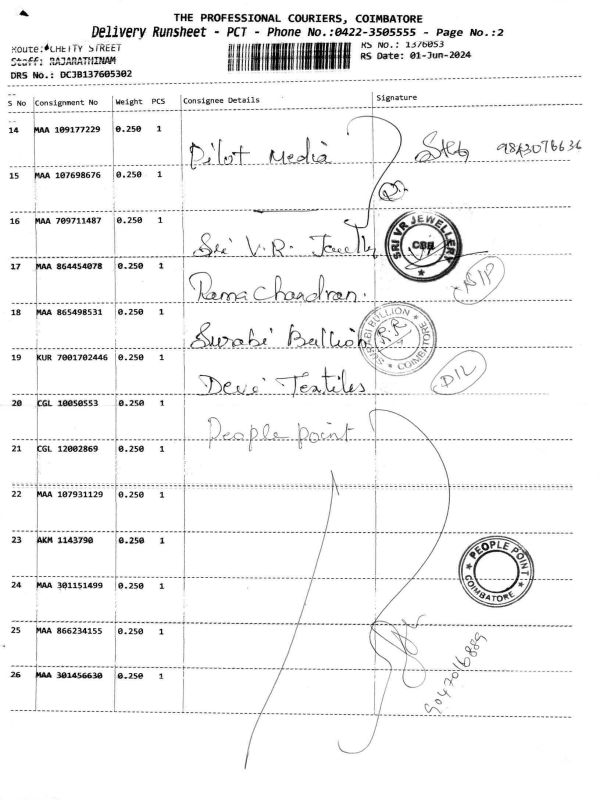 THE PROFESSIONAL COURIERS, COIMBATORE
Delivery Runsheet - PCT - Phone No.:0422-3505555 - Page No.:2
Route: CHETTY STREET
Staff: RAJARATHINAM
DRS No.: DCJB137605302
RS No.: 1376053
RS Date: 01-Jun-2024
S No Consignment No Weight PCS Consignee Details Signature
14 MAA 109177229 0.250 1 Pilot Media 9843076636
15 MAA 107698676 0.250 1
16 MAA 709711487 0.250 1 Sri V.R. Jewelly SRI VR JEWELLERY CBE
17 MAA 864454078 0.250 1 Rama Chandran. N/P
18 MAA 865498531 0.250 1 Surabi Bullion SURABI BULLION COIMBATORE R.R
19 KUR 7001702446 0.250 1 Devi Textiles D/L
20 CGL 10050553 0.250 1 People point
21 CGL 12002869 0.250 1
22 MAA 107931129 0.250 1
23 AKM 1143790 0.250 1 PEOPLE POINT COIMBATORE
24 MAA 301151499 0.250 1
25 MAA 866234155 0.250 1 9047016889
26 MAA 301456630 0.250 1